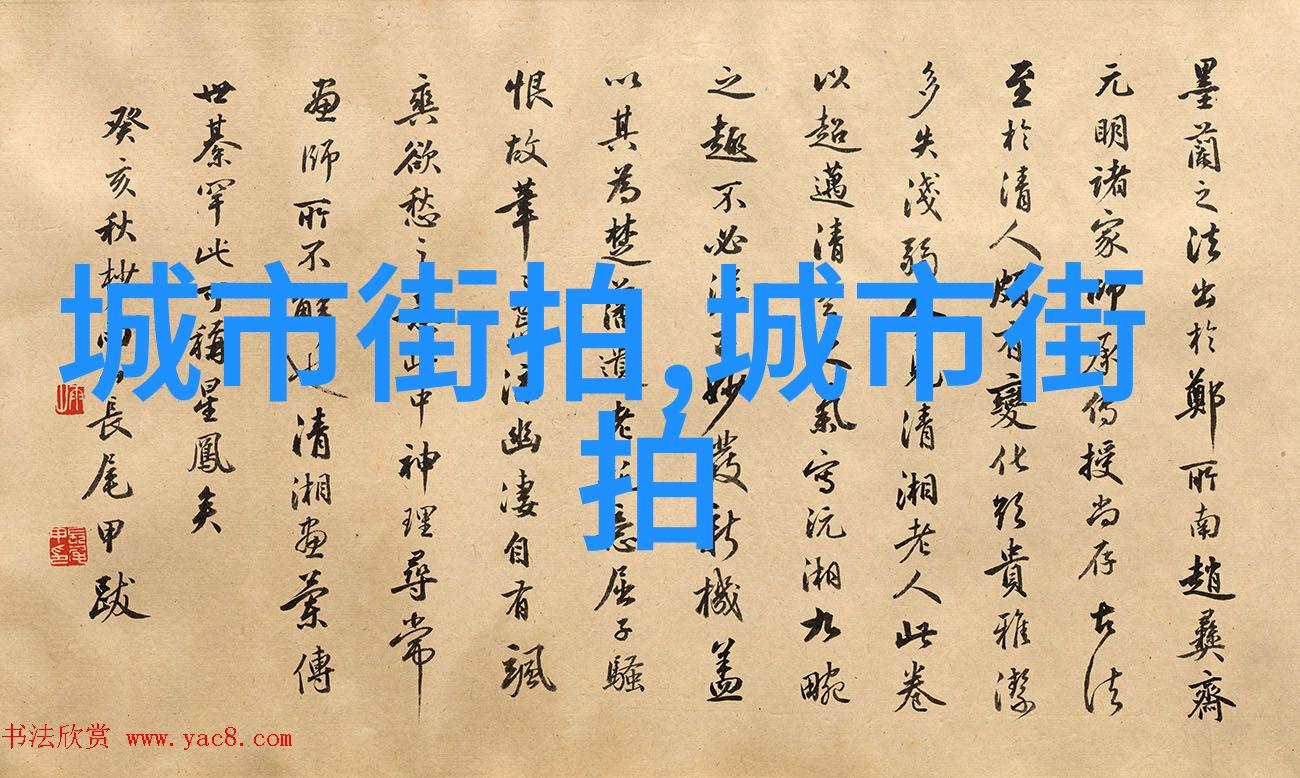 城市街拍,城市街
拍
墨蘭之法出於鄭所南趙彝齋
元明諸家師承傳授尚存古法
至於清人頗有變化 貴雅潔
多失淺弱 見清湘老人此卷
以超邁清 氣寫沅湘九畹
之趣不必 妙發新機蓋
以其為楚藩遺老 屈子騷
恨故筆 注幽淒自有颯
爽欲愁之 此中神理尋常
畫師所不 也清湘畫蘭傳
世綦罕此可稱星鳳矣
癸亥秋杪 長尾甲跋
书法欣赏 www.yac8.com